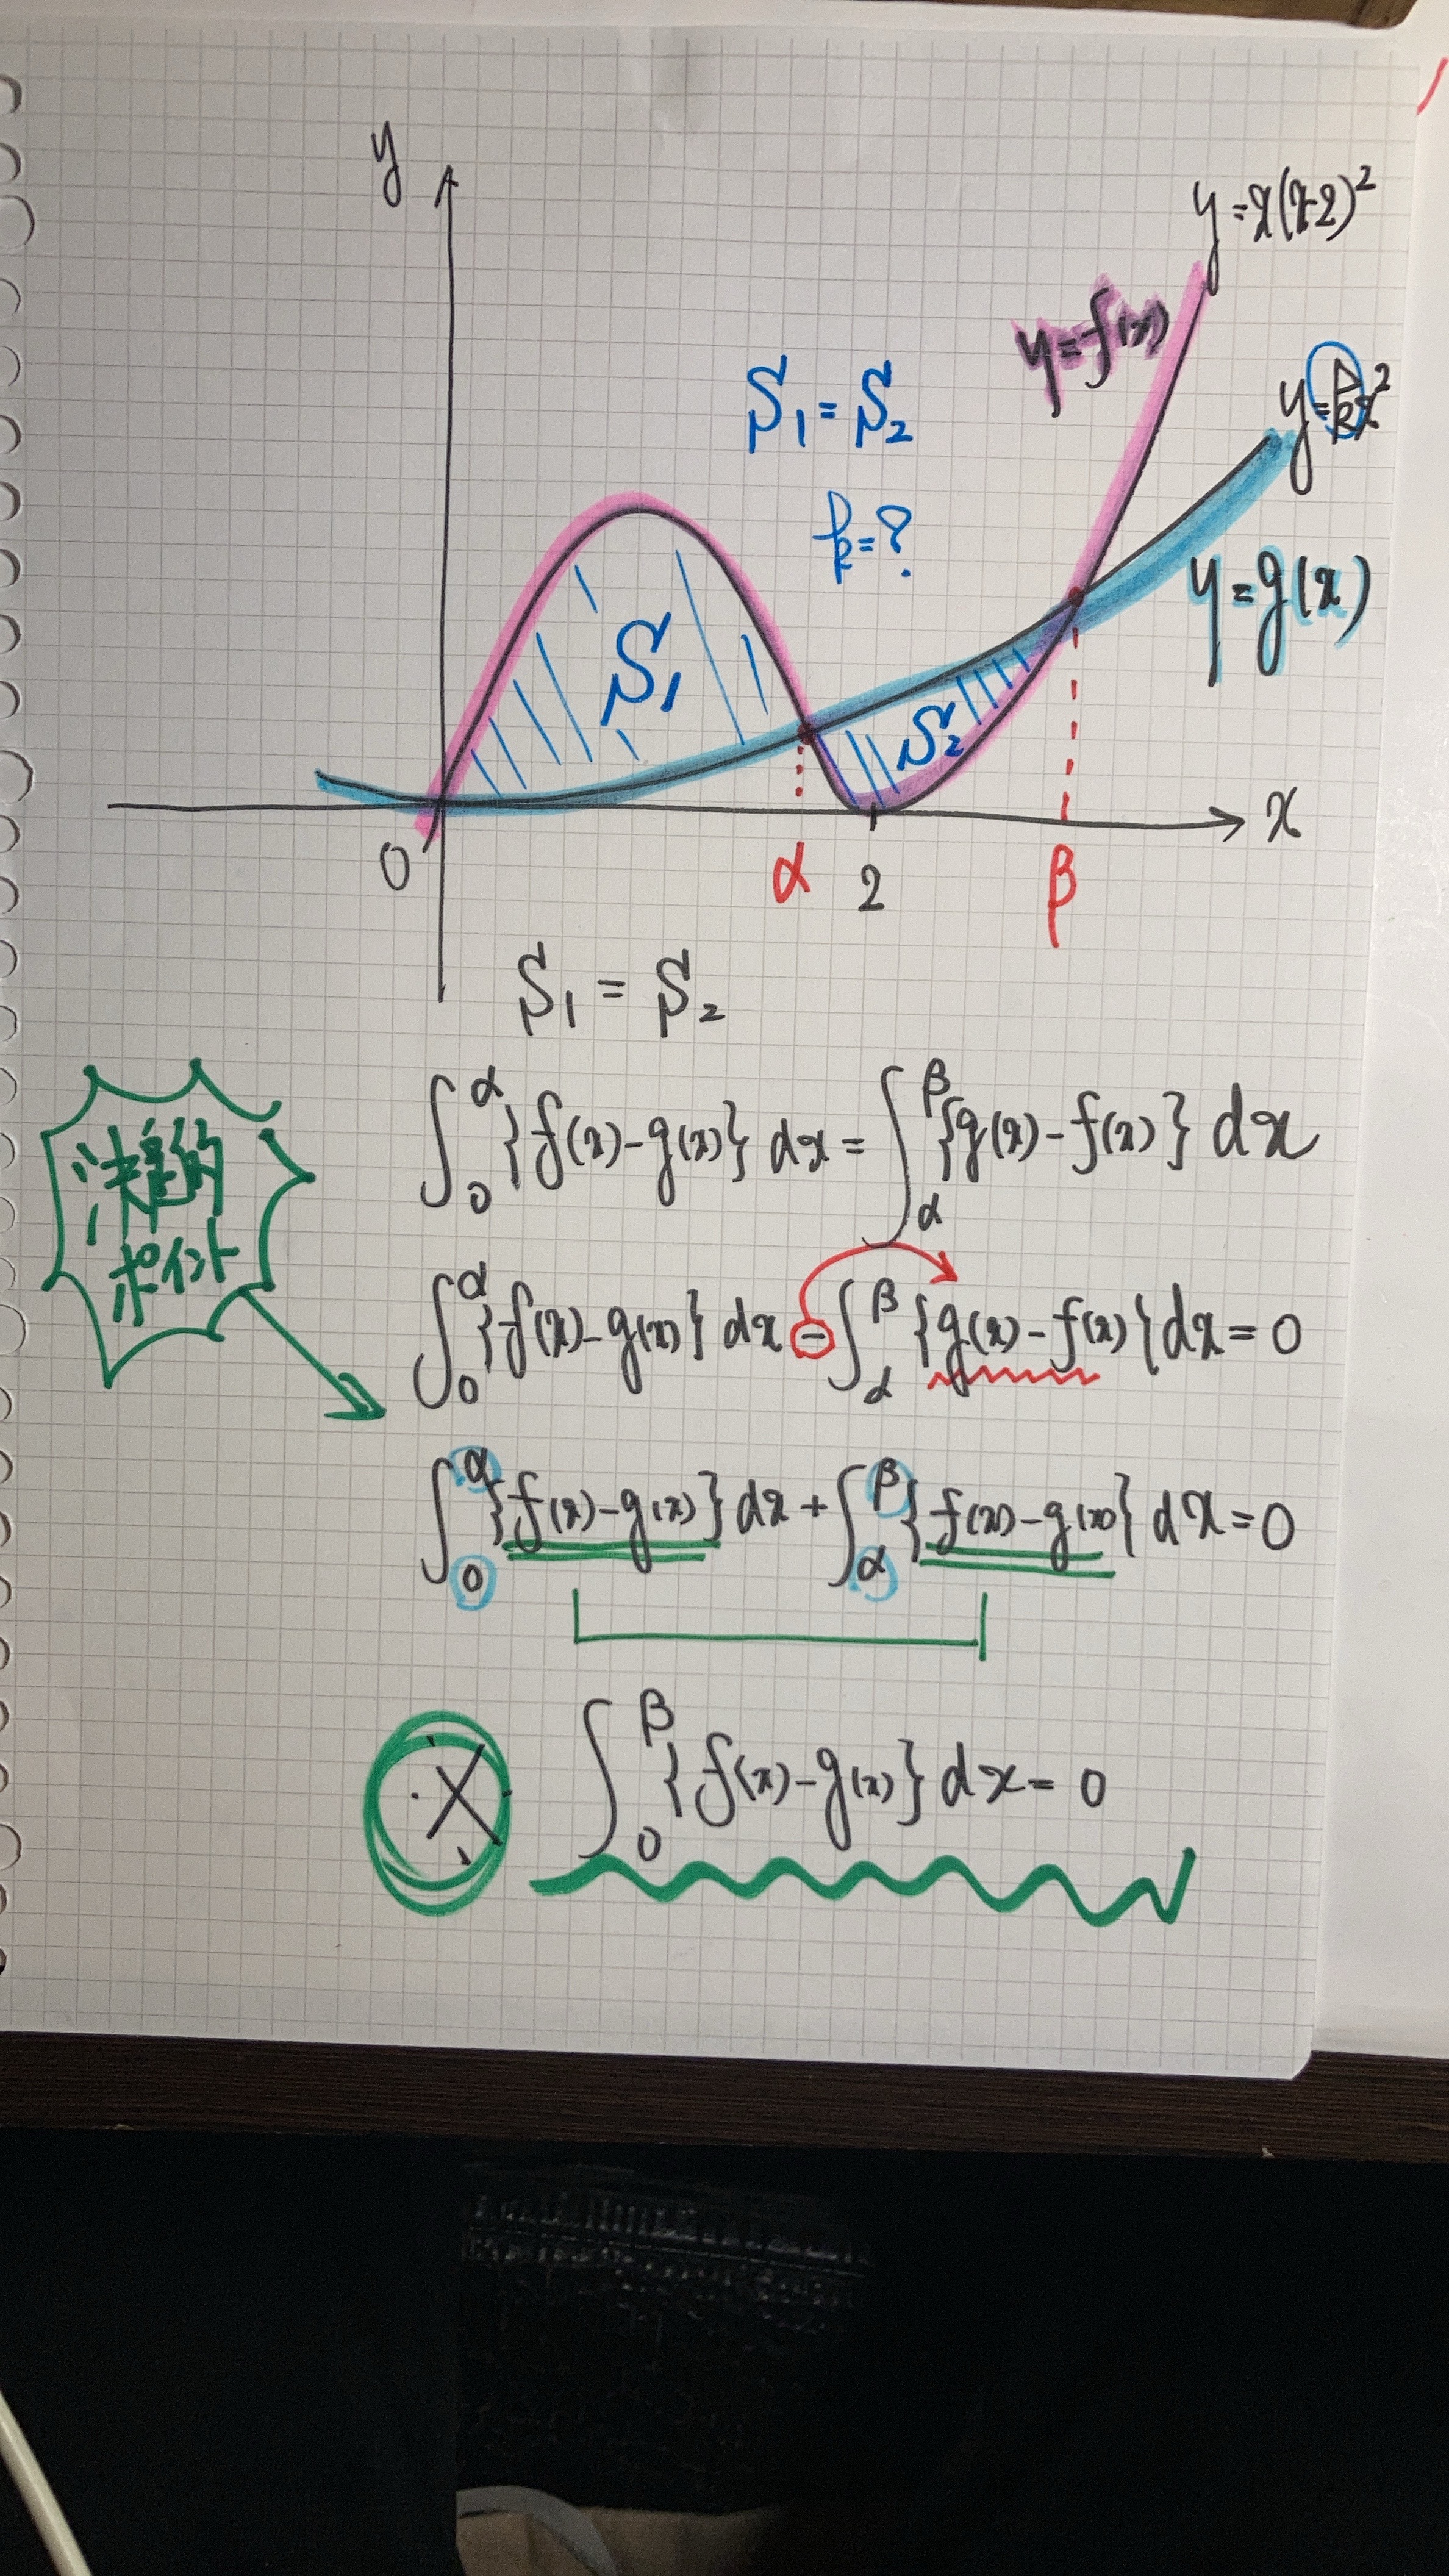 y
y=x(x-2)²
y=f(x)
y=kx²
S₁=S₂
k=?
y=g(x)
S₁
S₂
0
α
2
β
x
S₁ = S₂
∫₀^α {f(x)-g(x)} dx = ∫_α^β {g(x)-f(x)} dx
決定的
ポイント
∫₀^α {f(x)-g(x)} dx - ∫_α^β {g(x)-f(x)} dx = 0
∫₀^α {f(x)-g(x)} dx + ∫_α^β {f(x)-g(x)} dx = 0
※ ∫₀^β {f(x)-g(x)} dx = 0